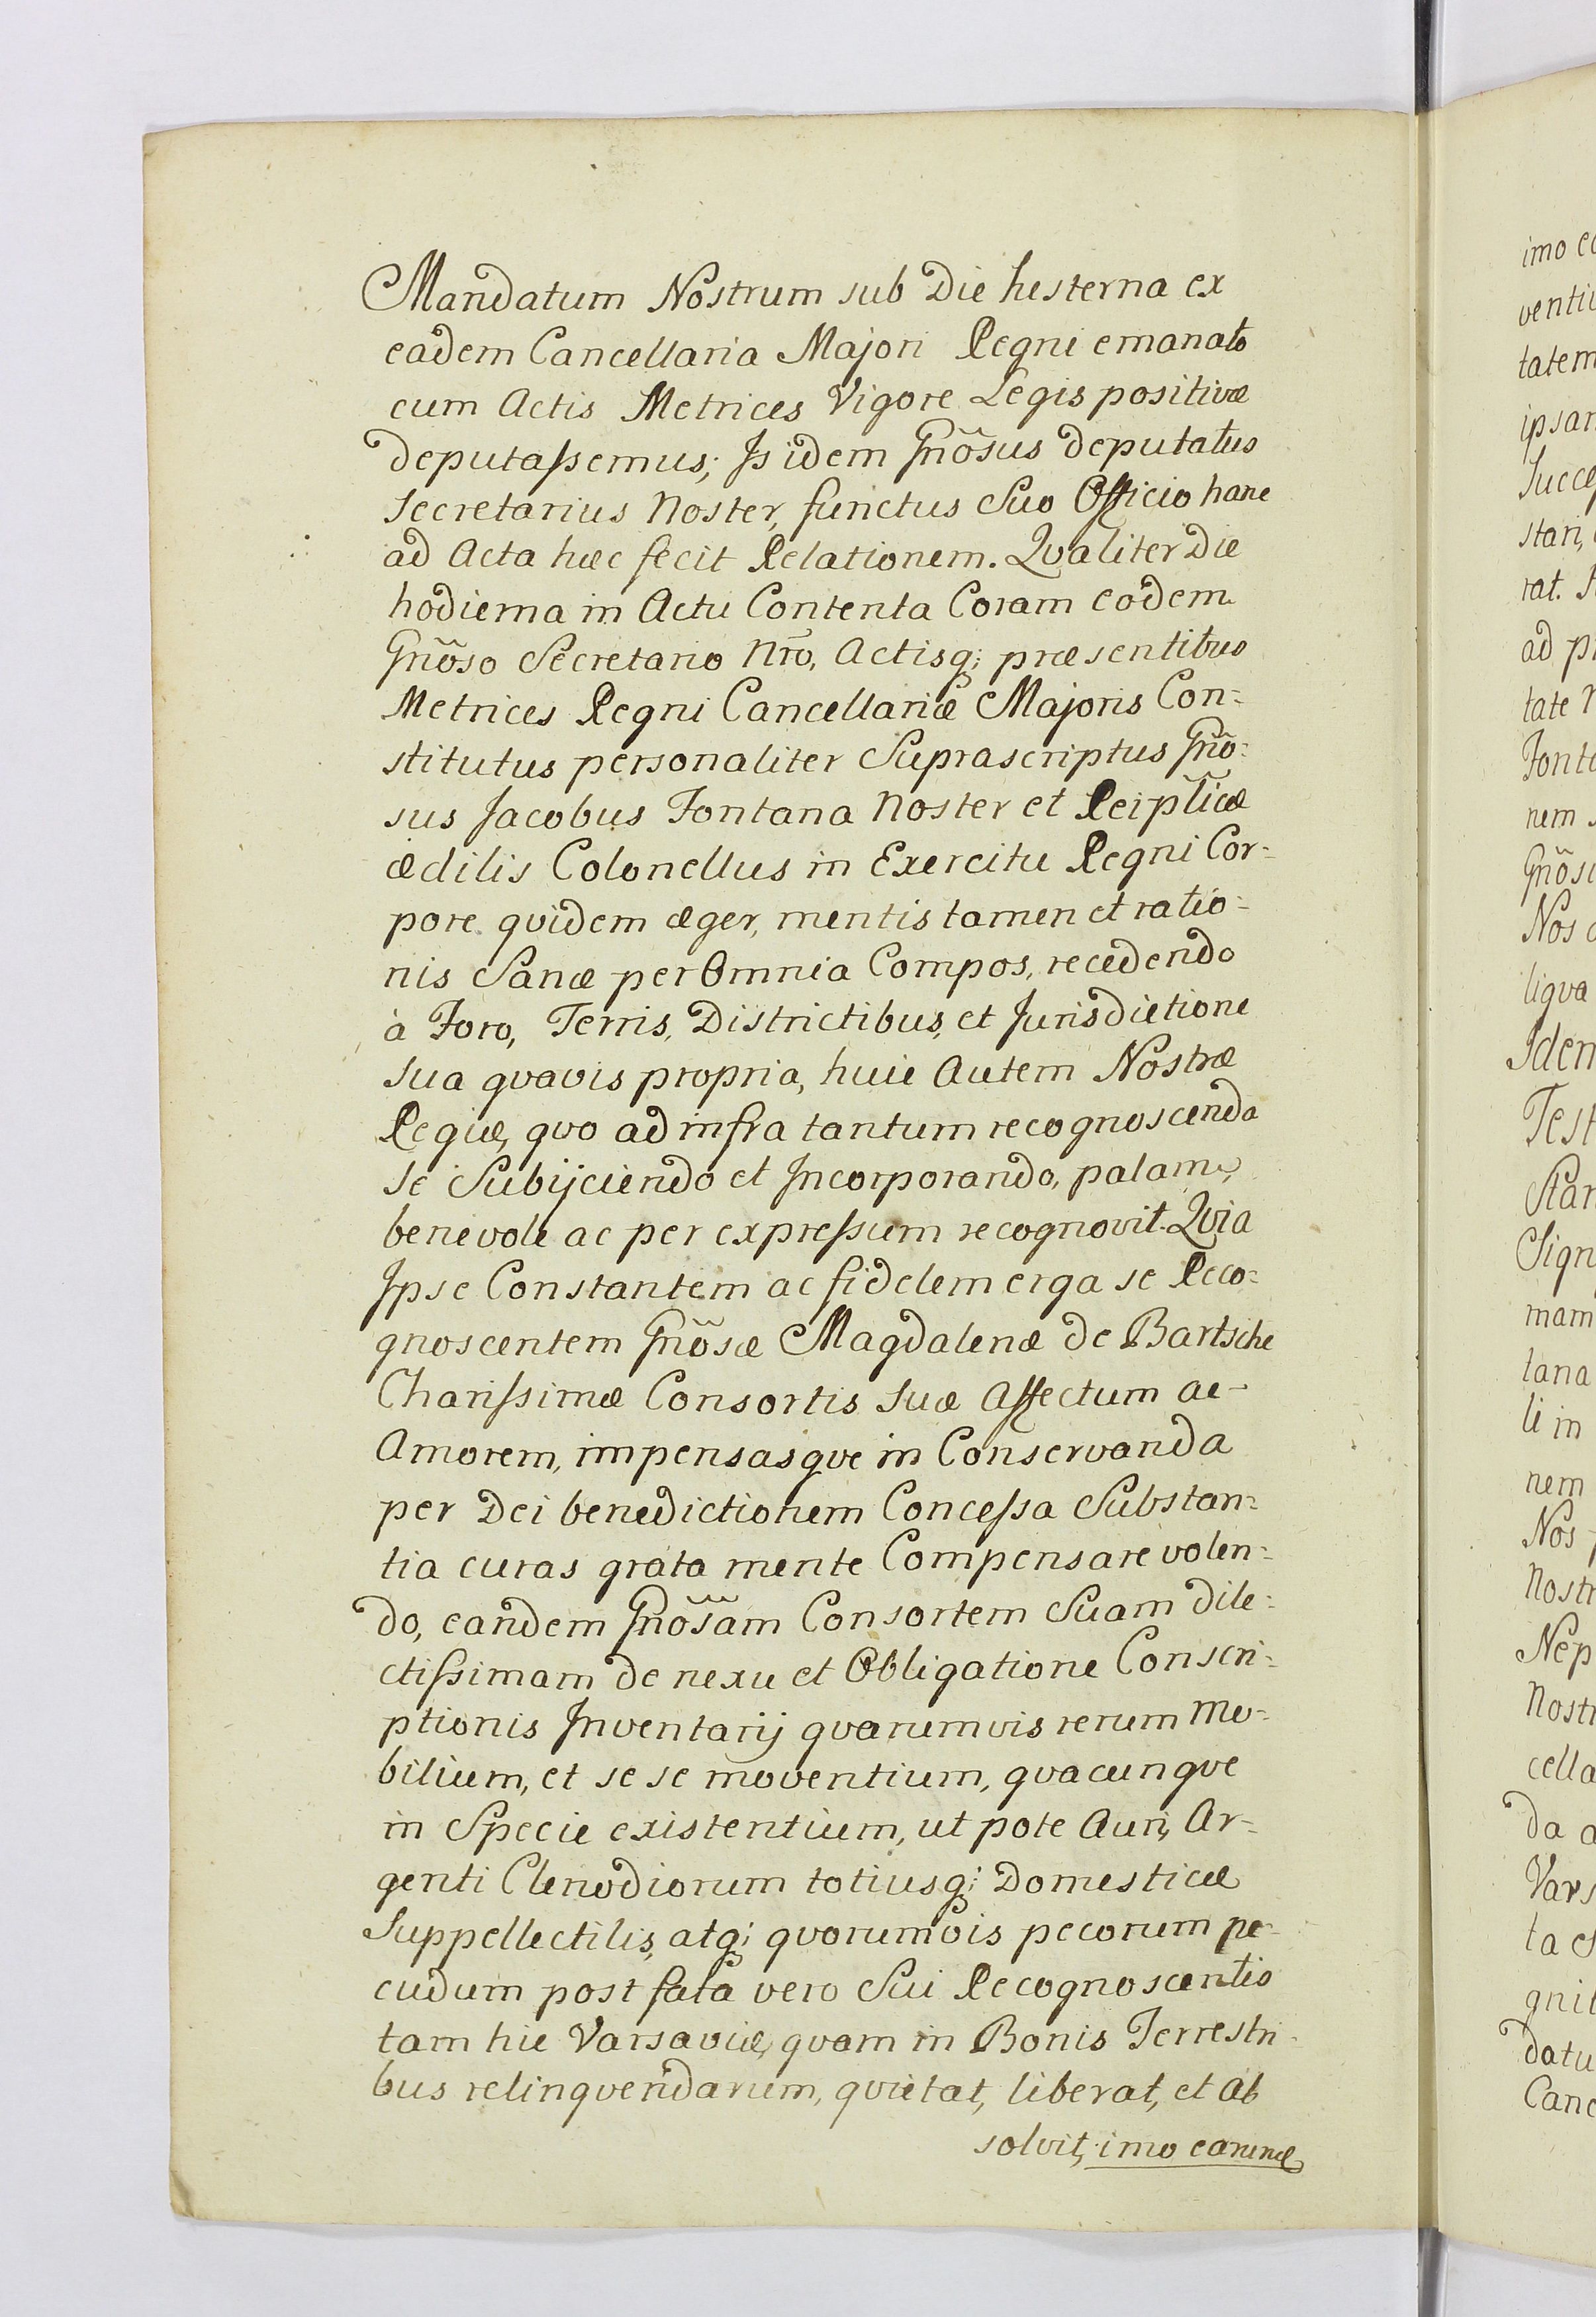 Mandatum Nostrum sub Die hesterna ex
eadem Cancellaria Majori Regni emanato
cum Actis Metrices Vigore Legis positivæ
deputaſsemus; Is idem Gnõsus deputatus
Secretarius Noster, functus Suo Officio hanc
ad Acta hæc fecit Relationem. Qvaliter Die
hodierna in Actu Contenta Coram eodem
Gnõso Secretario Nrõ, Actisq; præsentibus
Metrices Regni Cancellariæ Majoris Con=
stitutus personaliter Suprascriptus Gnõ=
sus Jacobus Fontana Noster et Reiplĩcæ
ædilis Colonellus in Exercitu Regni Cor=
pore qvidem æger, mentis tamen et ratio=
nis Sanæ per Omnia Compos, recedendo
à Foro, Terris, Districtibus, et Jurisdictione
sua qvavis propria, huic Autem Nostræ
Regiæ, qvo ad infra tantum recognoscenda
se Subijciendo et Incorporando, palam,
benevole ac per expreſsum recognovit. Qvia
Ipse Constantem ac fidelem erga se Reco=
gnoscentem Gnõsæ Magdalenæ de Bartsche
Chariſsimæ Consortis Suæ Affectum ac
Amorem, impensasqve in Conservanda
per Dei benedictionem Conceſsa Substan=
tia curas grata mente Compensare volen=
do, eandem Gnõsam Consortem Suam dile=
ctiſsimam de nexu et Obligatione Conscri=
ptionis Inventarij qvarumvis rerum Mo=
bilium, et se se moventium, qvacunqve
in Specie existentium, ut pote Auri, Ar=
genti Clenodiorum totiusq; Domesticæ
Suppellectilis, atq; qvorumvis pecorum pe=
cudum post fata vero Sui Recognoscentis
tam hic Varsaviæ, qvam in Bonis Terrestri=
bus relinqvendarum, qvietat, liberat, et ab
solvit, imo earundẽ
imo e
venti
tatem
ipsam
Succe
stari,
rat.
ad p
tate
Fonta
nem
Gnõs
Nos
liqva
Idem
Test
Stan
Sign
mam
lana
li in
nem
Nos
Nostr
Nep
Nostr
cella
da a
Vars
ta
gni
datu
Canc